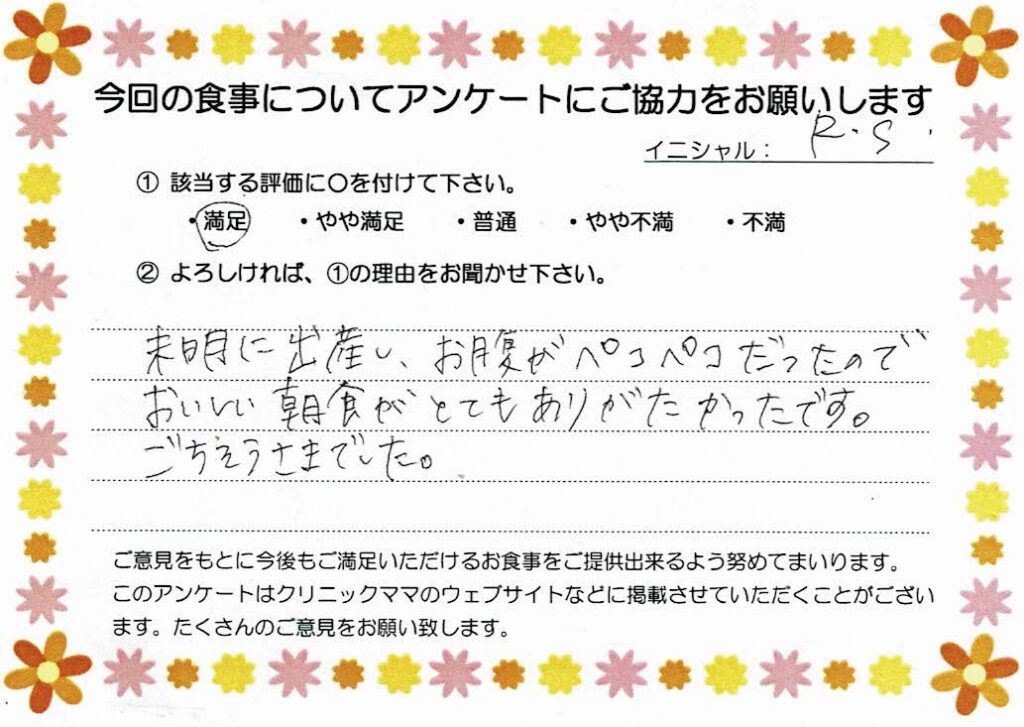 今回の食事についてアンケートにご協力をお願いします
イニシャル： R.S.
① 該当する評価に○を付けて下さい。
・満足 ・やや満足 ・普通 ・やや不満 ・不満
② よろしければ、①の理由をお聞かせ下さい。
未明に出産し、お腹がペコペコだったので
おいしい朝食がとてもありがたかったです。
ごちそうさまでした。
ご意見をもとに今後もご満足いただけるお食事をご提供出来るよう努めてまいります。
このアンケートはクリニックママのウェブサイトなどに掲載させていただくことがござい
ます。たくさんのご意見をお願い致します。